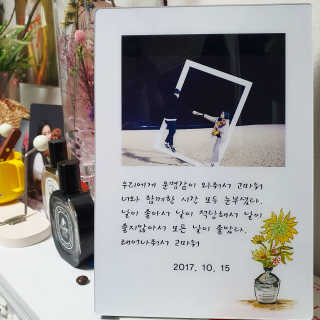 우리에게 운명같이 와줘서 고마워
너와 함께한 시간 모두 눈부셨다.
날이 좋아서 날이 적당해서 날이
좋지않아서 모든 날이 좋았다.
태어나줘서 고마워
2017. 10. 15